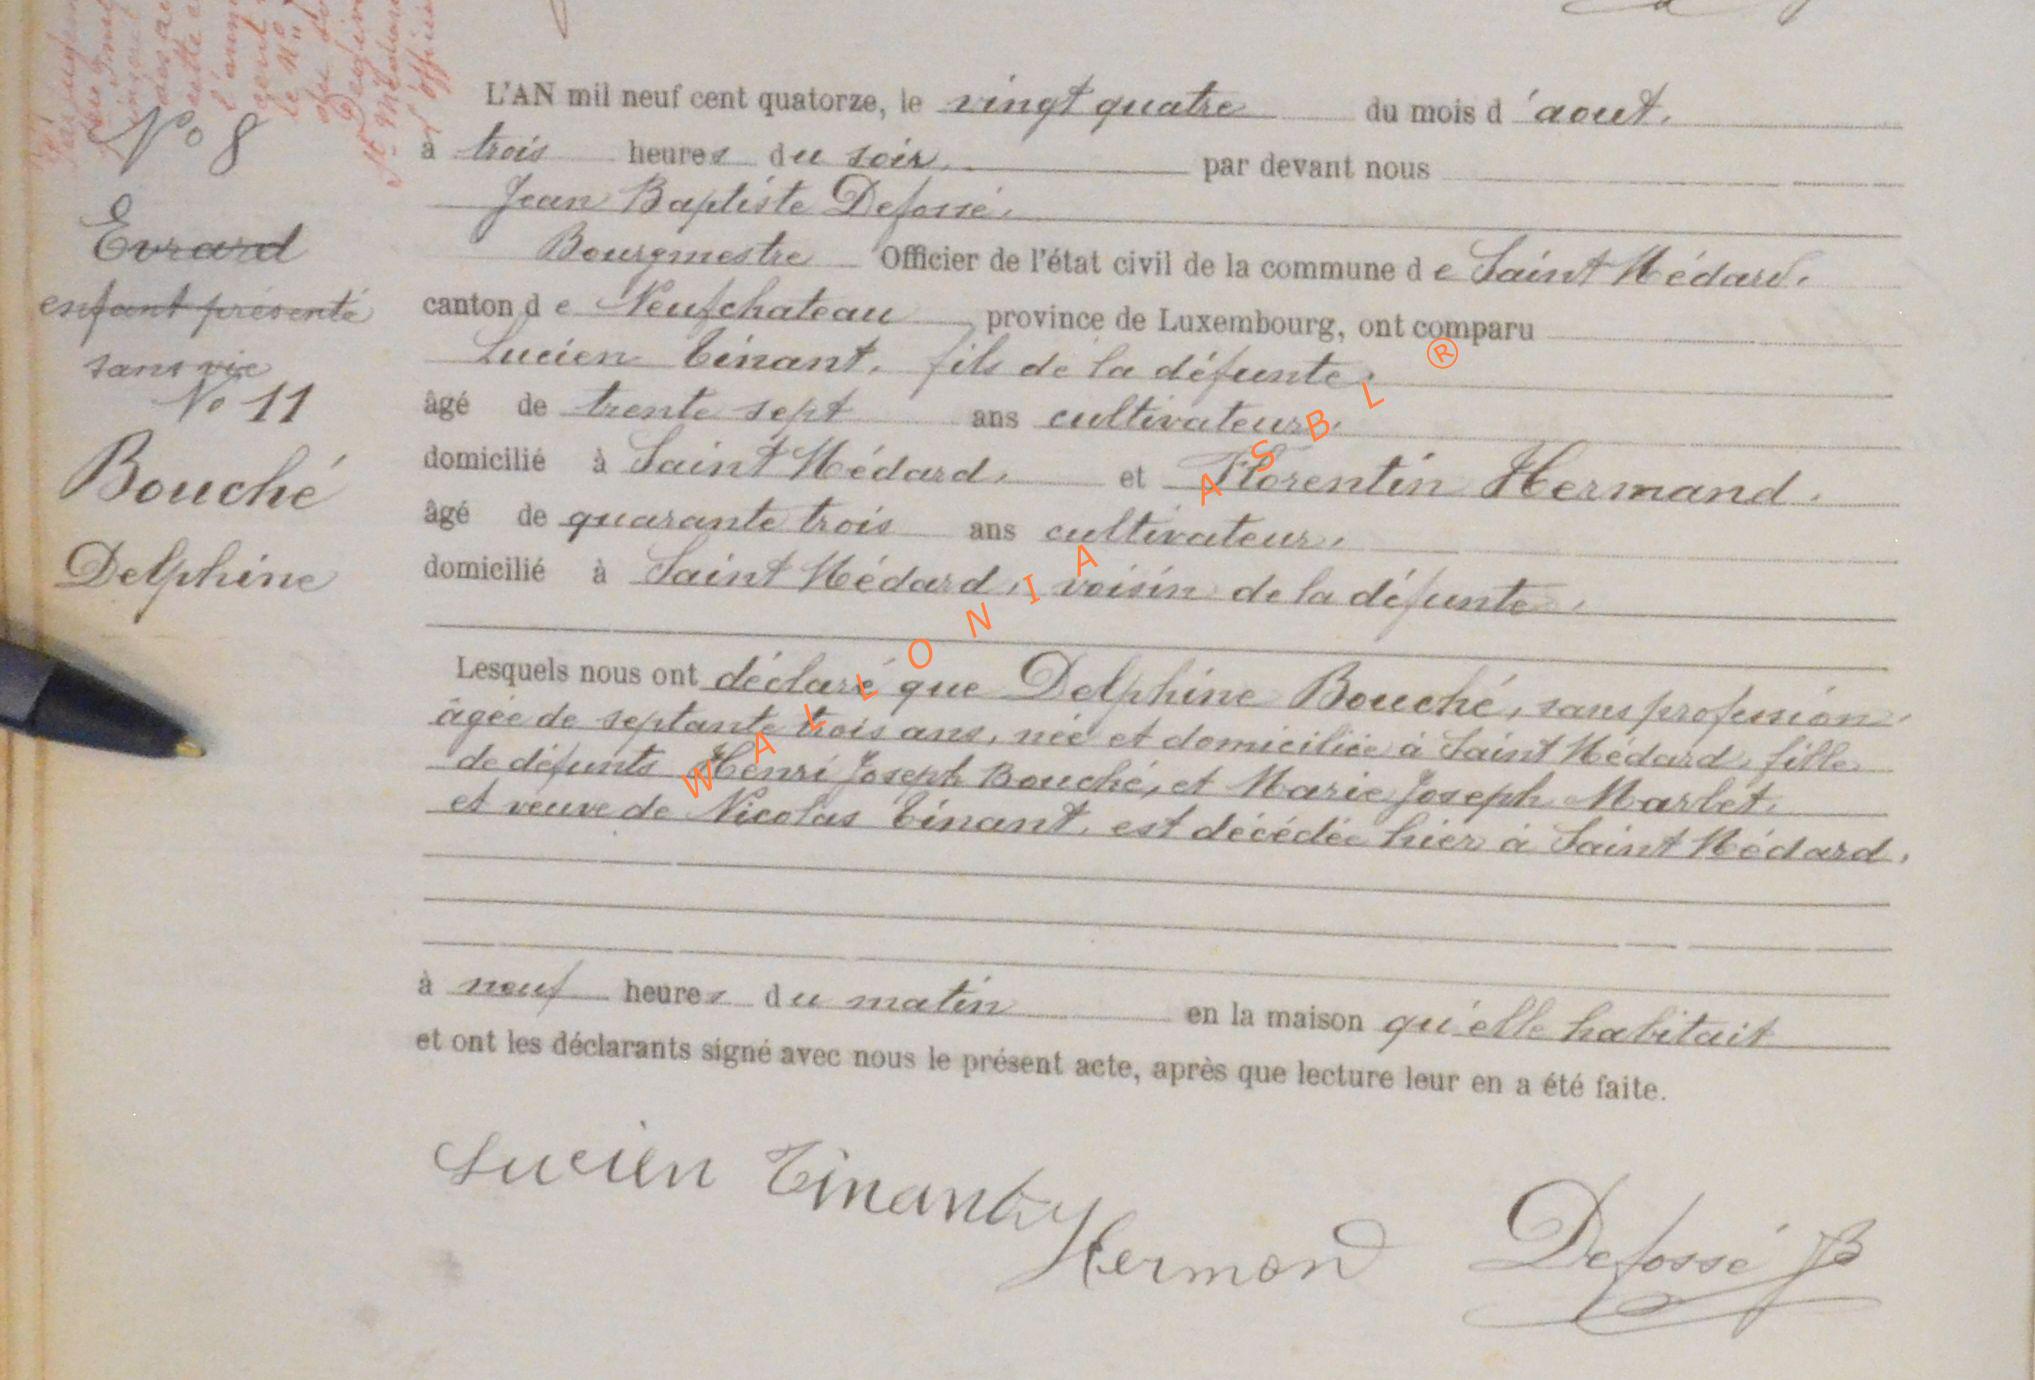 N° 8
Evrard
enfant présenté
sans vie
N° 11
Bouché
Delphine
L'AN mil neuf cent quatorze, le vingt quatre du mois d'aout.
à trois heures du soir. par devant nous
Jean Baptiste Defossé.
Bourgmestre Officier de l'état civil de la commune de Saint Médard.
canton de Neufchateau, province de Luxembourg, ont comparu
Lucien Tinant, fils de la défunte.
âgé de trente sept ans cultivateur.
domicilié à Saint Médard. et Florentin Hermand.
âgé de quarante trois ans cultivateur.
domicilié à Saint Médard, voisin de la défunte.
Lesquels nous ont déclaré que Delphine Bouché, sans profession,
âgée de septante trois ans, née et domiciliée à Saint Médard, fille
de défunts Henri Joseph Bouché, et Marie Joseph Marbet,
et veuve de Nicolas Tinant, est décédée hier à Saint Médard,
à neuf heures du matin en la maison qu'elle habitait
et ont les déclarants signé avec nous le présent acte, après que lecture leur en a été faite.
Lucien Tinant
Hermand
Defossé JB
WALLONIA ASBL ®